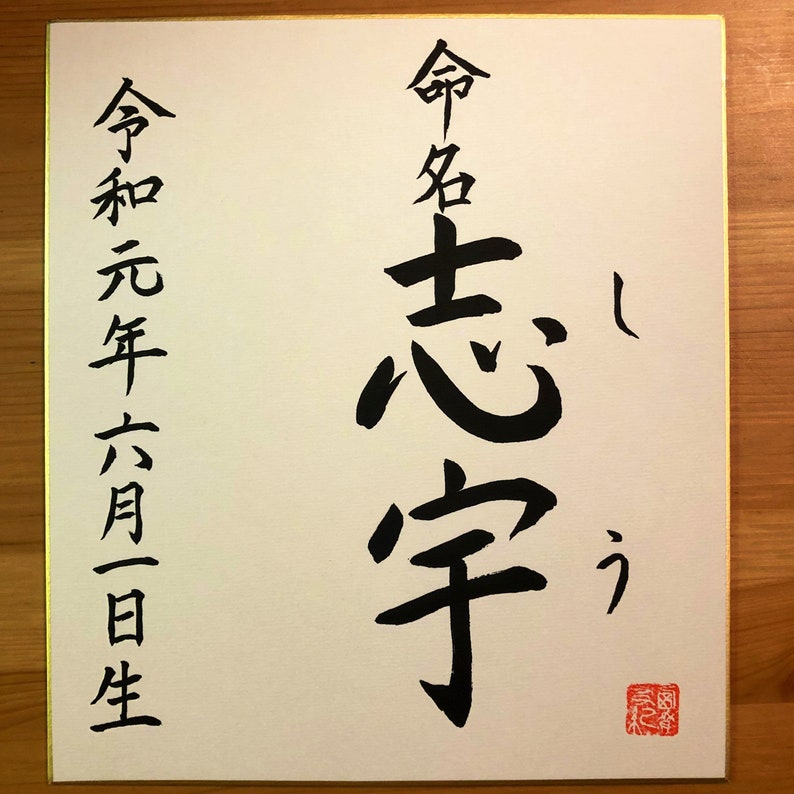 しう
命名 志宇
令和元年六月一日生